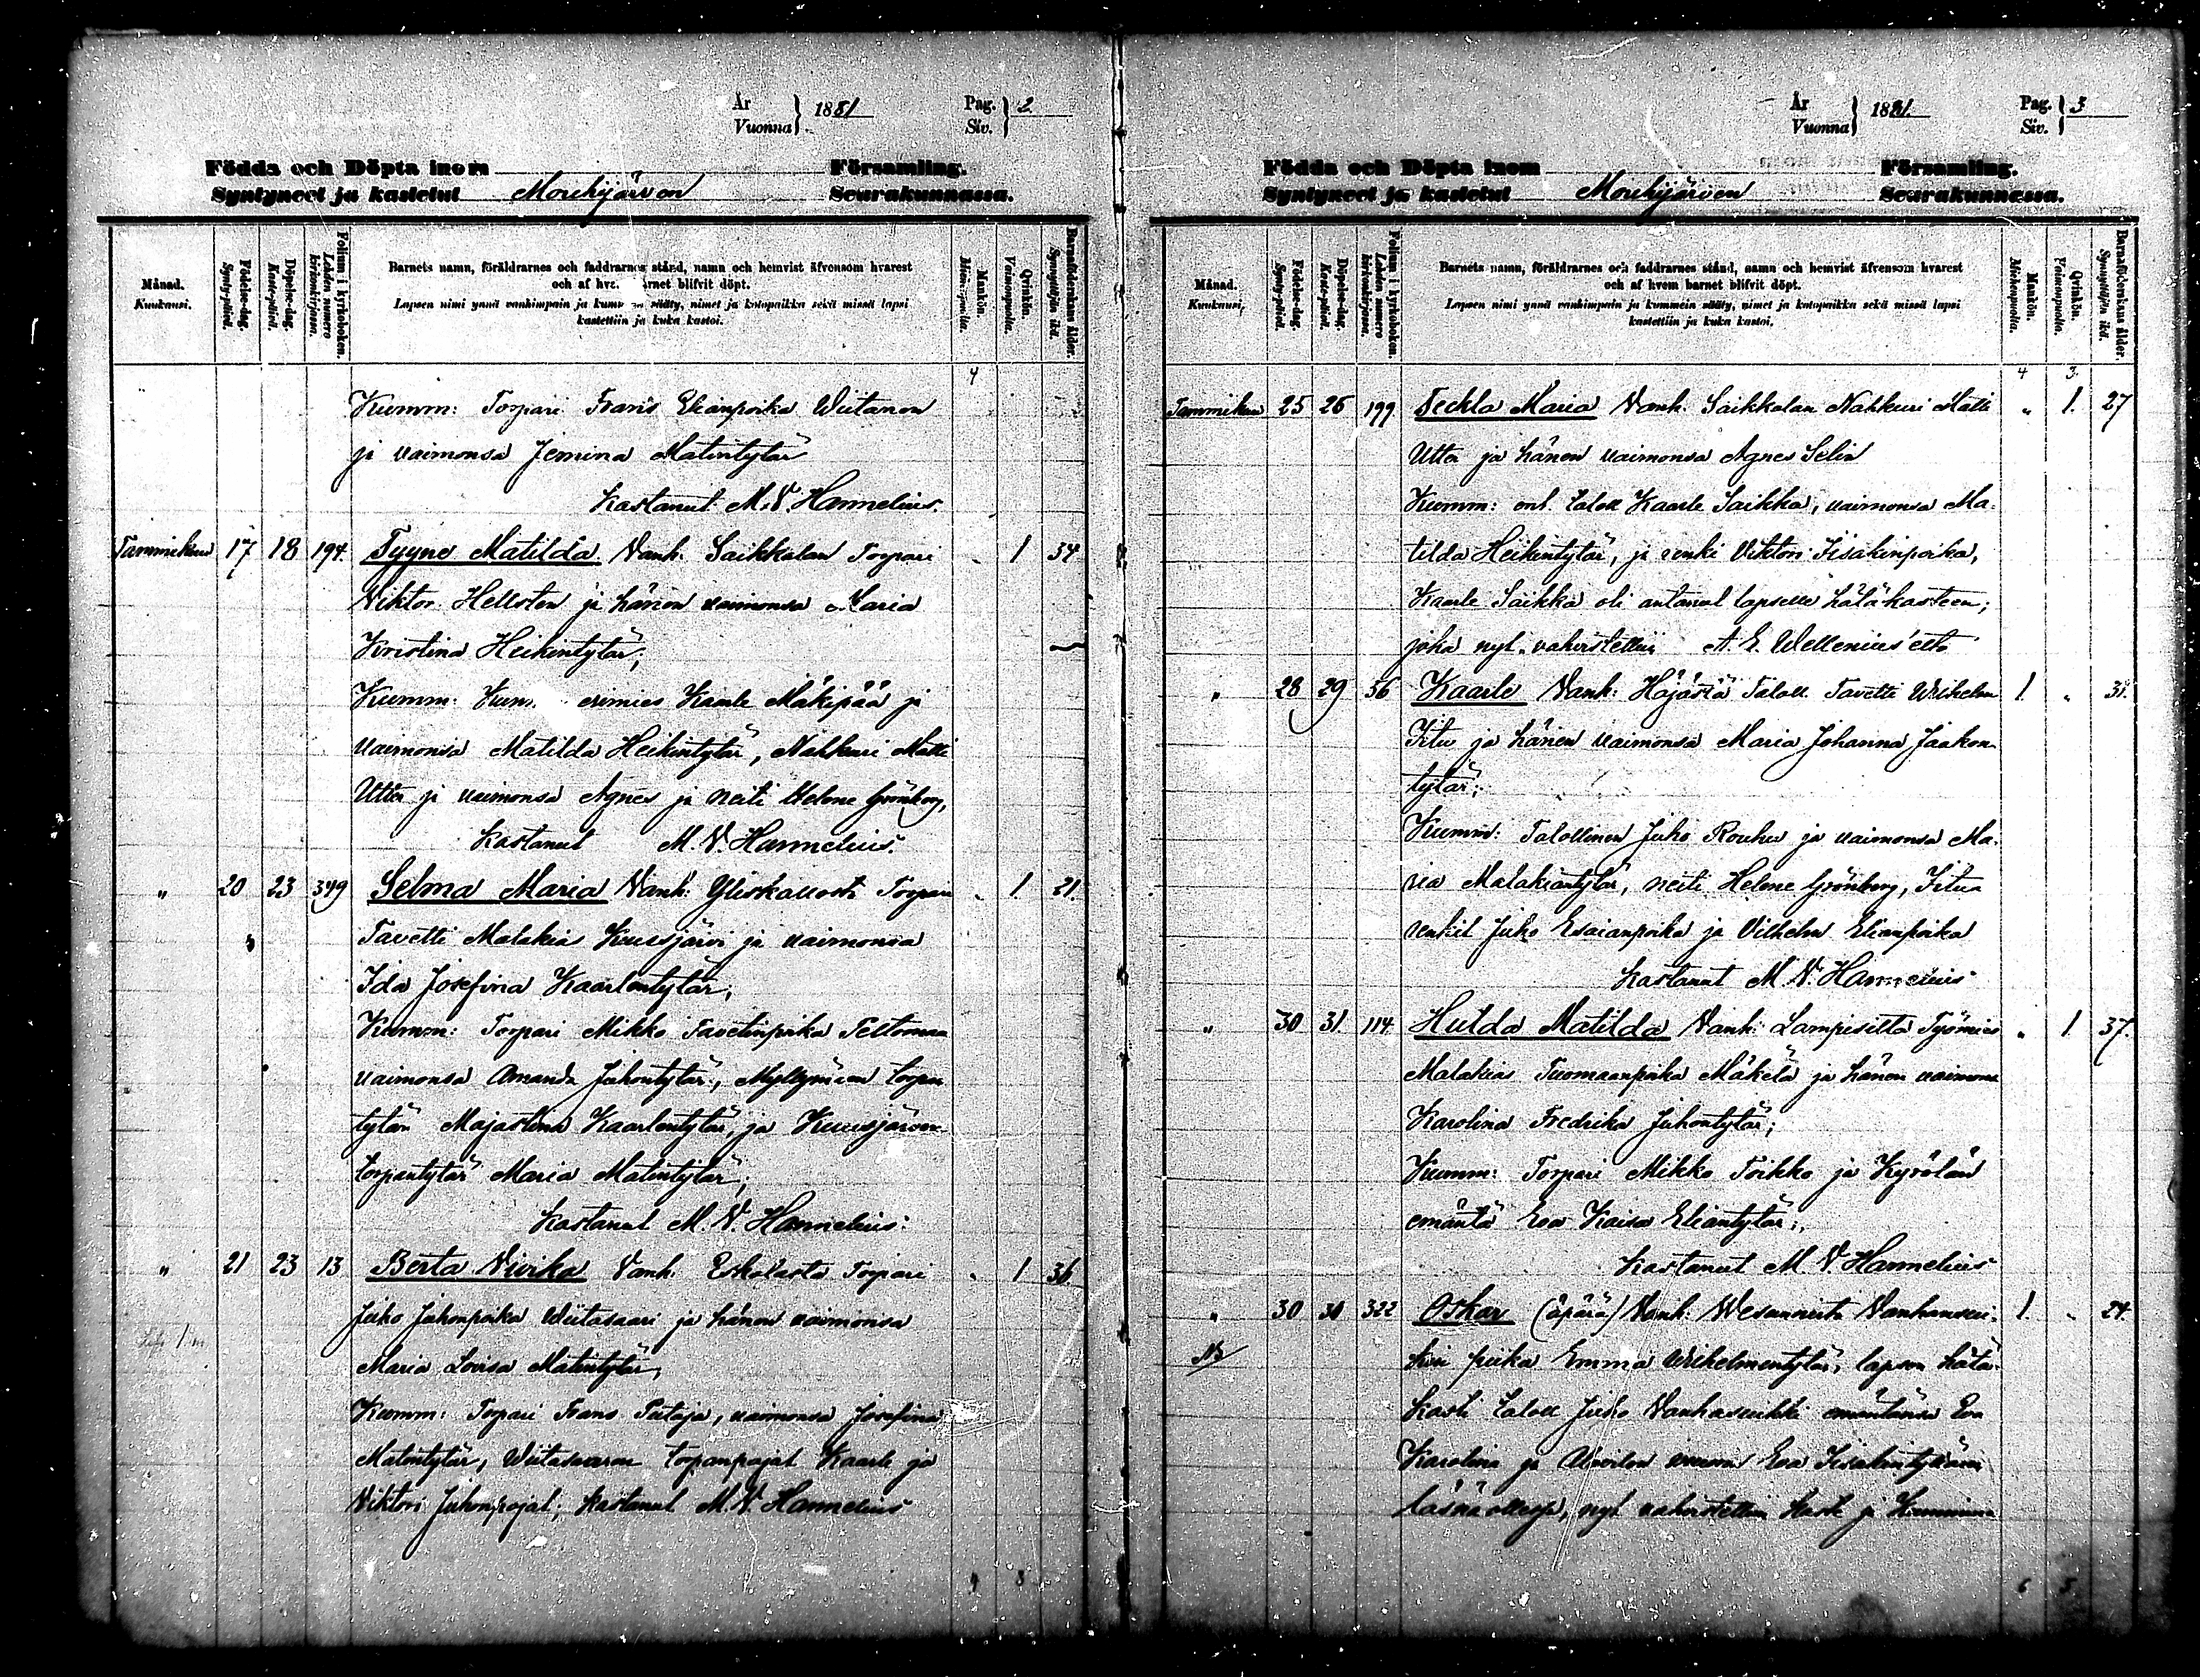 År
Vuonna } 1881
Pag.
Siv. } 2
Födda och Döpta inom Församling.
Syntyneet ja kastetut Mouhijärven Seurakunnassa.
Månad.
Kuukausi.
Födelse-dag.
Synty-päivä.
Döpelse-dag.
Kaste-päivä.
Folium i kyrkoboken.
Lehden numero kirkonkirjassa.
Barnets namn, föräldrarnes och faddrarnes stånd, namn och hemvist äfvensom hvarest
och af hvem barnet blifvit döpt.
Lapsen nimi ynnä vanhimpain ja kummein sääty, nimet ja kotopaikka sekä missä lapsi
kastettiin ja kuka kastoi.
Mankön.
Miehenpuolia.
Qvinkön.
Vaimonpuolia.
Barnaföderskans ålder.
Synnyttäjän ikä.
4
Kumm: Torpari Frans Elianpoika Wiitanen
ja vaimonsa Jemina Matintytär
Kastanut M. V. Hannelius.
Tammikuu 17 18 194. Tyyne Matilda Vanh. Saikkalan Torpari " 1 34
Viktor Hellsten ja hänen vaimonsa Maria
Kristina Heikintytär;
Kumm: Kaarle Mäkipää ja
vaimonsa Matilda Heikintytär, Nahkuri Matti
Utter ja vaimonsa Agnes ja neiti Helene Grönberg,
Kastanut M. V. Hannelius.
" 20 23 349 Selma Maria Vanh: Yliskallosta Torpari " 1. 21.
Tavetti Malakias Kuusjärvi ja vaimonsa
Ida Josefina Kaarlentytär;
Kumm: Torpari Mikko Tavetinpoika Peltomaa
vaimonsa Amanda Juhontytär, Myllymäen torpan
tytär Majastina Kaarlentytär, ja Kuusjärven
torpantytär Maria Matintytär;
Kastanut M. V. Hannelius.
" 21 23 13 Berta Viivika Vanh. Eskolasta Torpari " 1 36
Juho Juhonpoika Wiitasaari ja hänen vaimonsa
Maria Lovisa Matintytär,
Kumm: Torpari Frans Piitaja, vaimonsa Josefina
Matintytär, Wiitasaaren torpanpojat Kaarle ja
Viktori Juhonpojat; Kastanut M. V. Hannelius
År
Vuonna } 1881.
Pag.
Siv. } 3
Födda och Döpta inom Församling.
Syntyneet ja kastetut Mouhijärven Seurakunnassa.
Månad.
Kuukausi.
Födelse-dag.
Synty-päivä.
Döpelse-dag.
Kaste-päivä.
Folium i kyrkoboken.
Lehden numero kirkonkirjassa.
Barnets namn, föräldrarnes och faddrarnes stånd, namn och hemvist äfvensom hvarest
och af hvem barnet blifvit döpt.
Lapsen nimi ynnä vanhimpain ja kummein sääty, nimet ja kotopaikka sekä missä lapsi
kastettiin ja kuka kastoi.
Mankön.
Miehenpuolia.
Qvinkön.
Vaimonpuolia.
Barnaföderskans ålder.
Synnyttäjän ikä.
4 3
Tammikuu 25 26 199 Teckla Maria Vanh. Saikkalan Nahkuri Matti " 1. 27
Utter ja hänen vaimonsa Agnes Selin
Kumm: ent. taloll Kaarle Saikka, vaimonsa Ma-
tilda Heikintytär, ja renki Viktori Iisakinpoika,
Kaarle Saikka oli antanut lapselle hätäkasteen;
joka nyt vahvistettiin A. E. Wellenius'elta
" 28 29 56 Kaarle Vanh: Häjästä Taloll Tavetti Wilhelm 1 "
Iitu ja hänen vaimonsa Maria Johanna Jaakon-
tytär;
Kumm: Talollinen Juho Rouhu ja vaimonsa Ma-
ria Malakiantytär, neiti Helene Grönberg, Iitun
renkit Juho Esaianpoika ja Vilhelm Elianpoika
Kastanut M. V. Hannelius
" 30 31. 114. Hulda Matilda Vanh: Lampisilta Työmies " 1. 37.
Malakias Tuomaanpoika Mäkelä ja hänen vaimonsa
Karolina Fredrika Juhontytär;
Kumm: Torpari Mikko Toikko ja Kyrölän
emäntä Eva Kaisa Eliantytär;
Kastanut M V Hannelius
" 30 30 322 Oskar (äpärä) Vanh: Wesunnista Vanhansui- 1. " 24.
NB
kin piika Emma Wilhelmentytär, lapsen hätä-
kasti taloll Juho Vanhasuikki emäntänsä Eva
Karolina ja Eva Iisakintyttären
läsnä ollessa, nyt vahvistettiin kaste ja Kummina
6 5